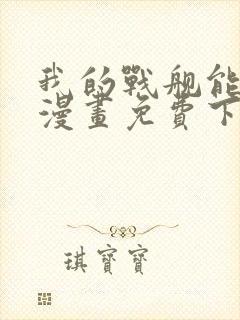 我的戰舰能
漫畫免費下
琪寶寶